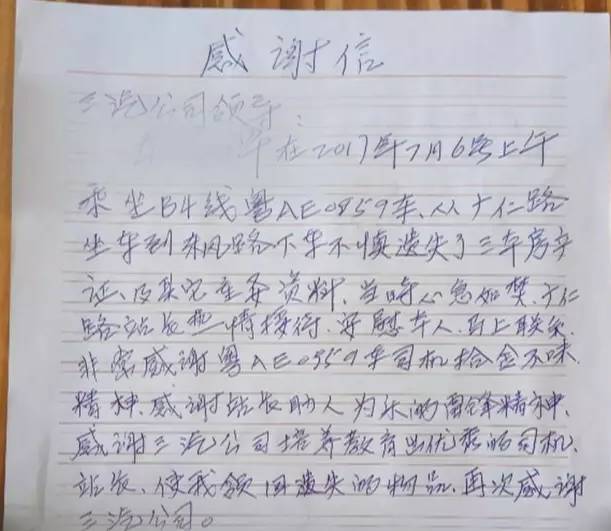 感谢信
三汽公司领导:
在2017年7月6号上午
乘坐B4线粤AE0859车、从广仁路
坐车到东风路下车不慎遗失了三本房产
证、及其它重要资料、当时心急如焚、广仁
路站长热情接待、安慰本人、马上联系、
非常感谢粤AE0859车司机拾金不昧
精神、感谢站长助人为乐的雷锋精神、
感谢三汽公司培养教育出优秀的司机、
站长、使我领回遗失的物品、再次感谢
三汽公司。